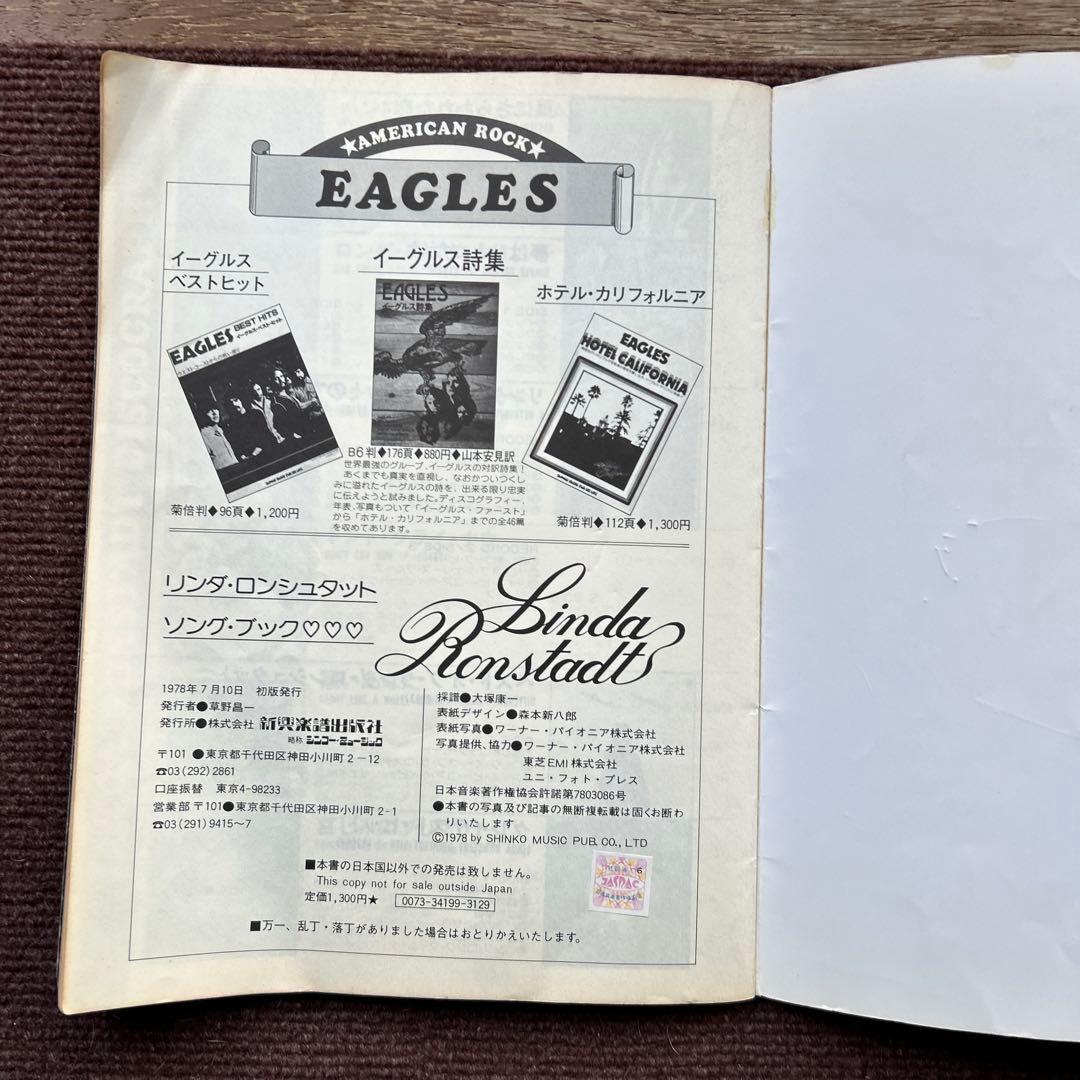 ★AMERICAN ROCK★
EAGLES
イーグルス
ベストヒット
イーグルス詩集
ホテル・カリフォルニア
EAGLES BEST HITS
イーグルス・ベスト・ヒット
EAGLES
イーグルス詩集
EAGLES
HOTEL CALIFORNIA
菊倍判◆96頁◆1,200円
B6判◆176頁◆880円◆山本安見訳
世界最強のグループ、イーグルスの対訳詩集!
あくまでも真実を直視し、なおかついつくし
みに溢れたイーグルスの詩を、出来る限り忠実
に伝えようと試みました。ディスコグラフィー、
年表、写真もついて「イーグルス・ファースト」
から「ホテル・カリフォルニア」までの全46篇
を収めてあります。
菊倍判◆112頁◆1,300円
リンダ・ロンシュタット
ソング・ブック♡♡♡
Linda
Ronstadt
1978年7月10日 初版発行
発行者●草野昌一
発行所●株式会社 新興楽譜出版社
略称 シンコー・ミュージック
〒101 ●東京都千代田区神田小川町2-12
☎03(292)2861
口座振替 東京4-98233
営業部 〒101●東京都千代田区神田小川町2-1
☎03(291)9415~7
採譜●大塚康一
表紙デザイン●森本新八郎
表紙写真●ワーナー・パイオニア株式会社
写真提供、協力●ワーナー・パイオニア株式会社
東芝EMI株式会社
ユニ・フォト・プレス
日本音楽著作権協会許諾第7803086号
●本書の写真及び記事の無断複転載は固くお断わ
りいたします
©1978 by SHINKO MUSIC PUB. CO., LTD
■本書の日本国以外での発売は致しません。
This copy not for sale outside Japan
定価1,300円★ 0073-34199-3129
JASRAC
■万一、乱丁・落丁がありました場合はおとりかえいたします。